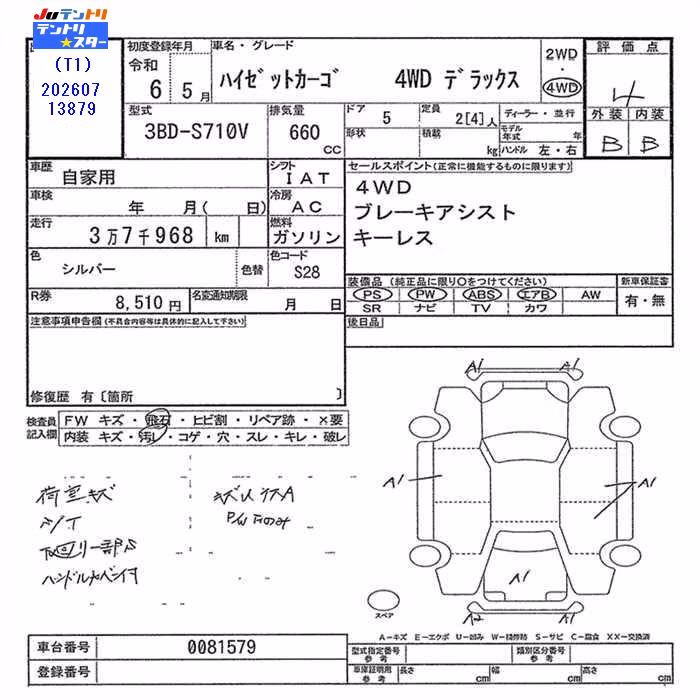 JUテントリ
テントリ
★スター
(T1)
202607
13879
初度登録年月
令和
6 5 月
車名・グレード
ハイゼットカーゴ 4WD デラックス
2WD
・
4WD
評価点
4
外装 内装
B B
型式
3BD-S710V
排気量
660
CC
ドア
5
形状
定員
2[4]人
積載
kg
ディーラー・並行
モデル年式 年
ハンドル 左・右
車歴
自家用
シフト
IAT
セールスポイント(正常に機能するものに限ります)
4WD
ブレーキアシスト
キーレス
車検
年 月( 日)
冷房
AC
走行
3万7千968 km
燃料
ガソリン
色
シルバー
色替
色コード
S28
R券
8,510円
名変通知期限
月 日
装備品(純正品に限り○をつけてください)
PS PW ABS エアB AW
SR ナビ TV カワ
新車保証書
有・無
注意事項申告欄(不具合内容等は具体的に記入して下さい)
後日品
修復歴 有〔箇所 〕
検査員
記入欄
FW キズ・飛石・ヒビ割・リペア跡・×要
内装 キズ・汚レ・コゲ・穴・スレ・キレ・破レ
荷室キズ
A/T
ハンドルカバー付
P/W 下のみ
A1 A1
A1 A1
A1
A2 A1
スペア
A-キズ E-エクボ U-凹み W-補修跡 S-サビ C-腐食 XX-交換済
車台番号
0081579
登録番号
型式指定番号
参考
類別区分番号
参考
車庫証明用
参考
長さ cm 幅 cm 高さ cm